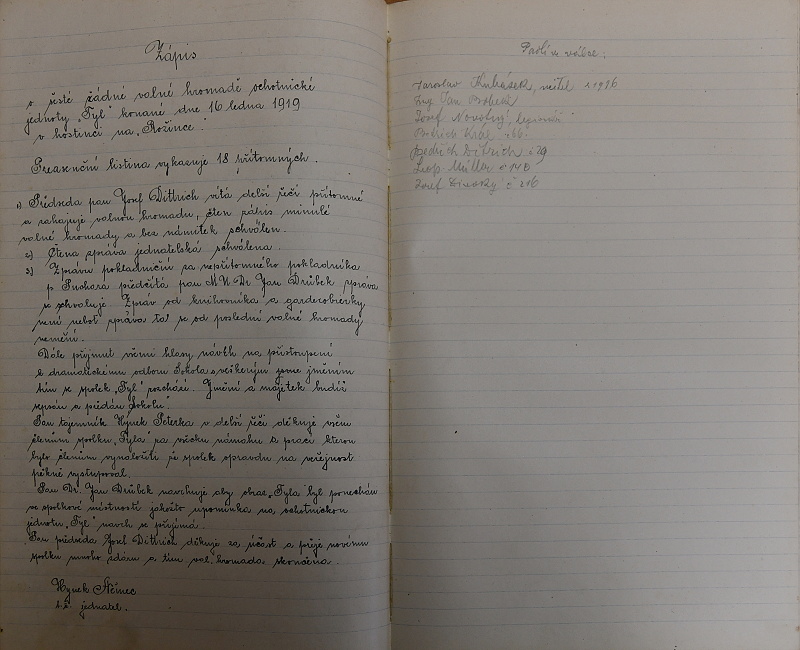 Zápis
o šesté řádné valné hromadě ochotnické
jednoty „Tyl" konané dne 16 ledna 1919
v hostinci na „Rožince".
Presenční listina vykazuje 18 přítomných.
1) Předseda pan Josef Dittrich vítá delší řečí přítomné
a zahajuje valnou hromadu, čten zápis minulé
valné hromady a bez námitek schválen.
2) Čtena zpráva jednatelská schválena.
3) Zprávu pokladniční za nepřítomného pokladníka
p. Puchara předčítá pan M.U.Dr. Jan Drúbek zpráva
se schvaluje. Zpráv od knihovníka a garderobierky
není neboť zpráva ta se od poslední valné hromady
nemění.
Dále přijmut všemi hlasy návrh na přistoupení
k dramatickému odboru Sokola s veškerým jměním
tím se spolek „Tyl" rozchází. Jmění a majetek budiž
sepsán a předán Sokolu.
Pan tajemník Hynek Peterka v delší řeči děkuje všem
členům spolku „Tyla" za všecku námahu a práci kterou
bylo členům vynaložiti že spolek opravdu na veřejnost
pěkně vystupoval.
Pan Dr. Jan Drúbek navrhuje aby obraz „Tyla" byl ponechán
ve spolkové místnosti jakožto upomínka na ochotnickou
jednotu „Tyl" návrh se přijímá.
Pan předseda Josef Dittrich děkuje za účast a přeje novému
spolku mnoho zdaru a tím val. hromada skončena.
Hynek Němec
t.č. jednatel.
Padlí ve válce:
Jaroslav Kubásek, učitel
Ing Jan
Josef Novotný,
Bedřich Král
Bedřich Dittrich č 29
Leop. Müller č 148
Josef č 216